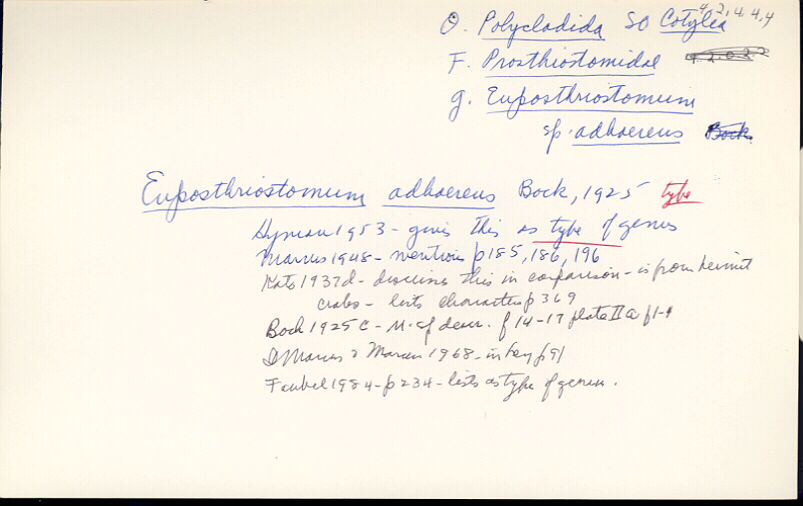 4.2.4.4.4
O. Polycladida SO Cotylea
F. Prosthiostomidae
g. Euposthriostomum
sp. adhaereus Bock
Euposthriostomum adhaereus Bock, 1925 type
Hyman 1953 - gives this as type of genus
Marcus 1948 - mentions p185, 186, 196
Kato 1937d - discusses this in comparison - is from hermit
crabs - lists characters p 369
Bock 1925c - of descr. p 14-17 plate II a f1-9
Marcus & Marcus 1968 - in key p91
Faubel 1984 - p234 - lists as type of genus.